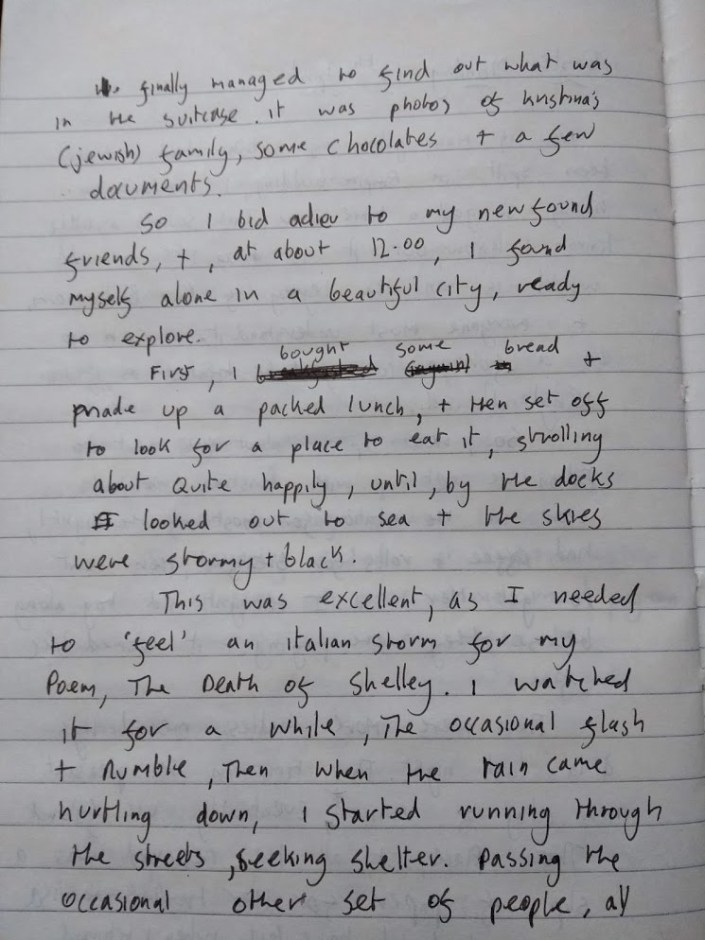 finally managed to find out what was
in the suitcase. it was photos of kristina's
(jewish) family, some chocolates + a few
documents.
So I bid adieu to my newfound
friends, +, at about 12.00, I found
myself alone in a beautiful city, ready
to explore.
First, I bought some bread +
made up a packed lunch, + then set off
to look for a place to eat it, strolling
about Quite happily, until, by the docks
I looked out to sea + the skies
were stormy + black.
This was excellent, as I needed
to 'feel' an italian storm for my
Poem, The Death of Shelley. I watched
it for a while, The occasional flash
+ Rumble, Then when the rain came
hurtling down, I started running through
the streets, seeking shelter. Passing the
occasional other set of people, all